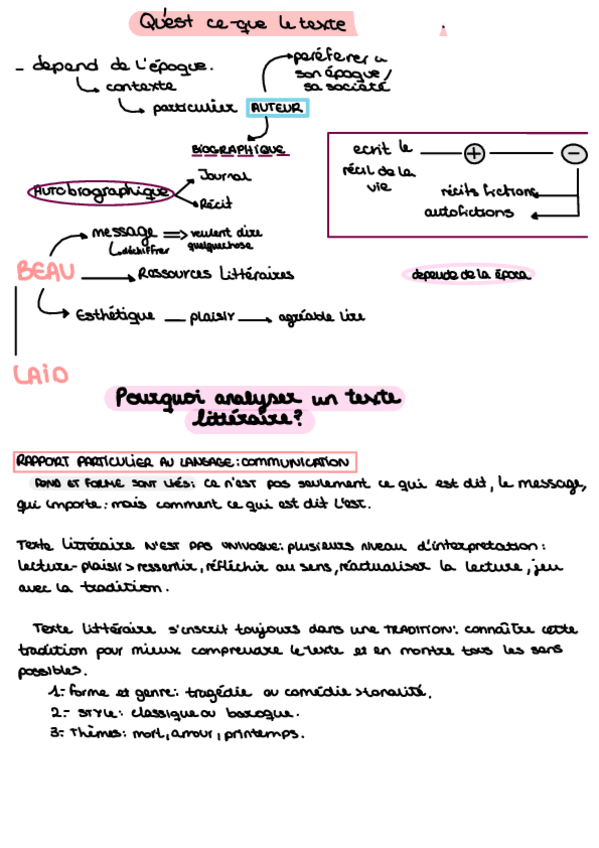 Qu'est ce-que le texte
- depend de l'époque.
contexte
particulier AUTEUR
peréferer a
son époque/
sa société
BIOGRAPHIQUE
Autobiographique
Journal
Récit
ecrit le
récil de la
vie
+
-
récits fictions
autofictions
message
déchiffrer
veulent dire
quelquechose
BEAU
Ressources littéraires
depende de la época
Esthétique — plaisir agréable lire
LAID
Pourquoi analyser un texte
littéraire?
RAPPORT PARTICULIER AU LANGAGE: COMMUNICATION
FOND ET FORME SONT LIÉS: ca n'est pas seulement ce qui est dit, le message,
qui importe: mais comment ce qui est dit l'est.
Texte littéraire N'EST PAS UNIVOQUE: plusieurs niveau d'interpretation:
lecture-plaisir > ressentir, réfléchir au sens, réactualiser la lecture, jeu
avec la tradition.
Texte littéraire s'inscrit toujours dans une TRADITION: connaître cette
tradition pour mieux comprendre le texte et en montre tous les sens
possibles.
1.- Forme et genre: tragédie ou comédie > tonalité.
2.- STYLE: classique ou baroque.
3.- Thèmes: mort, amour, printemps.